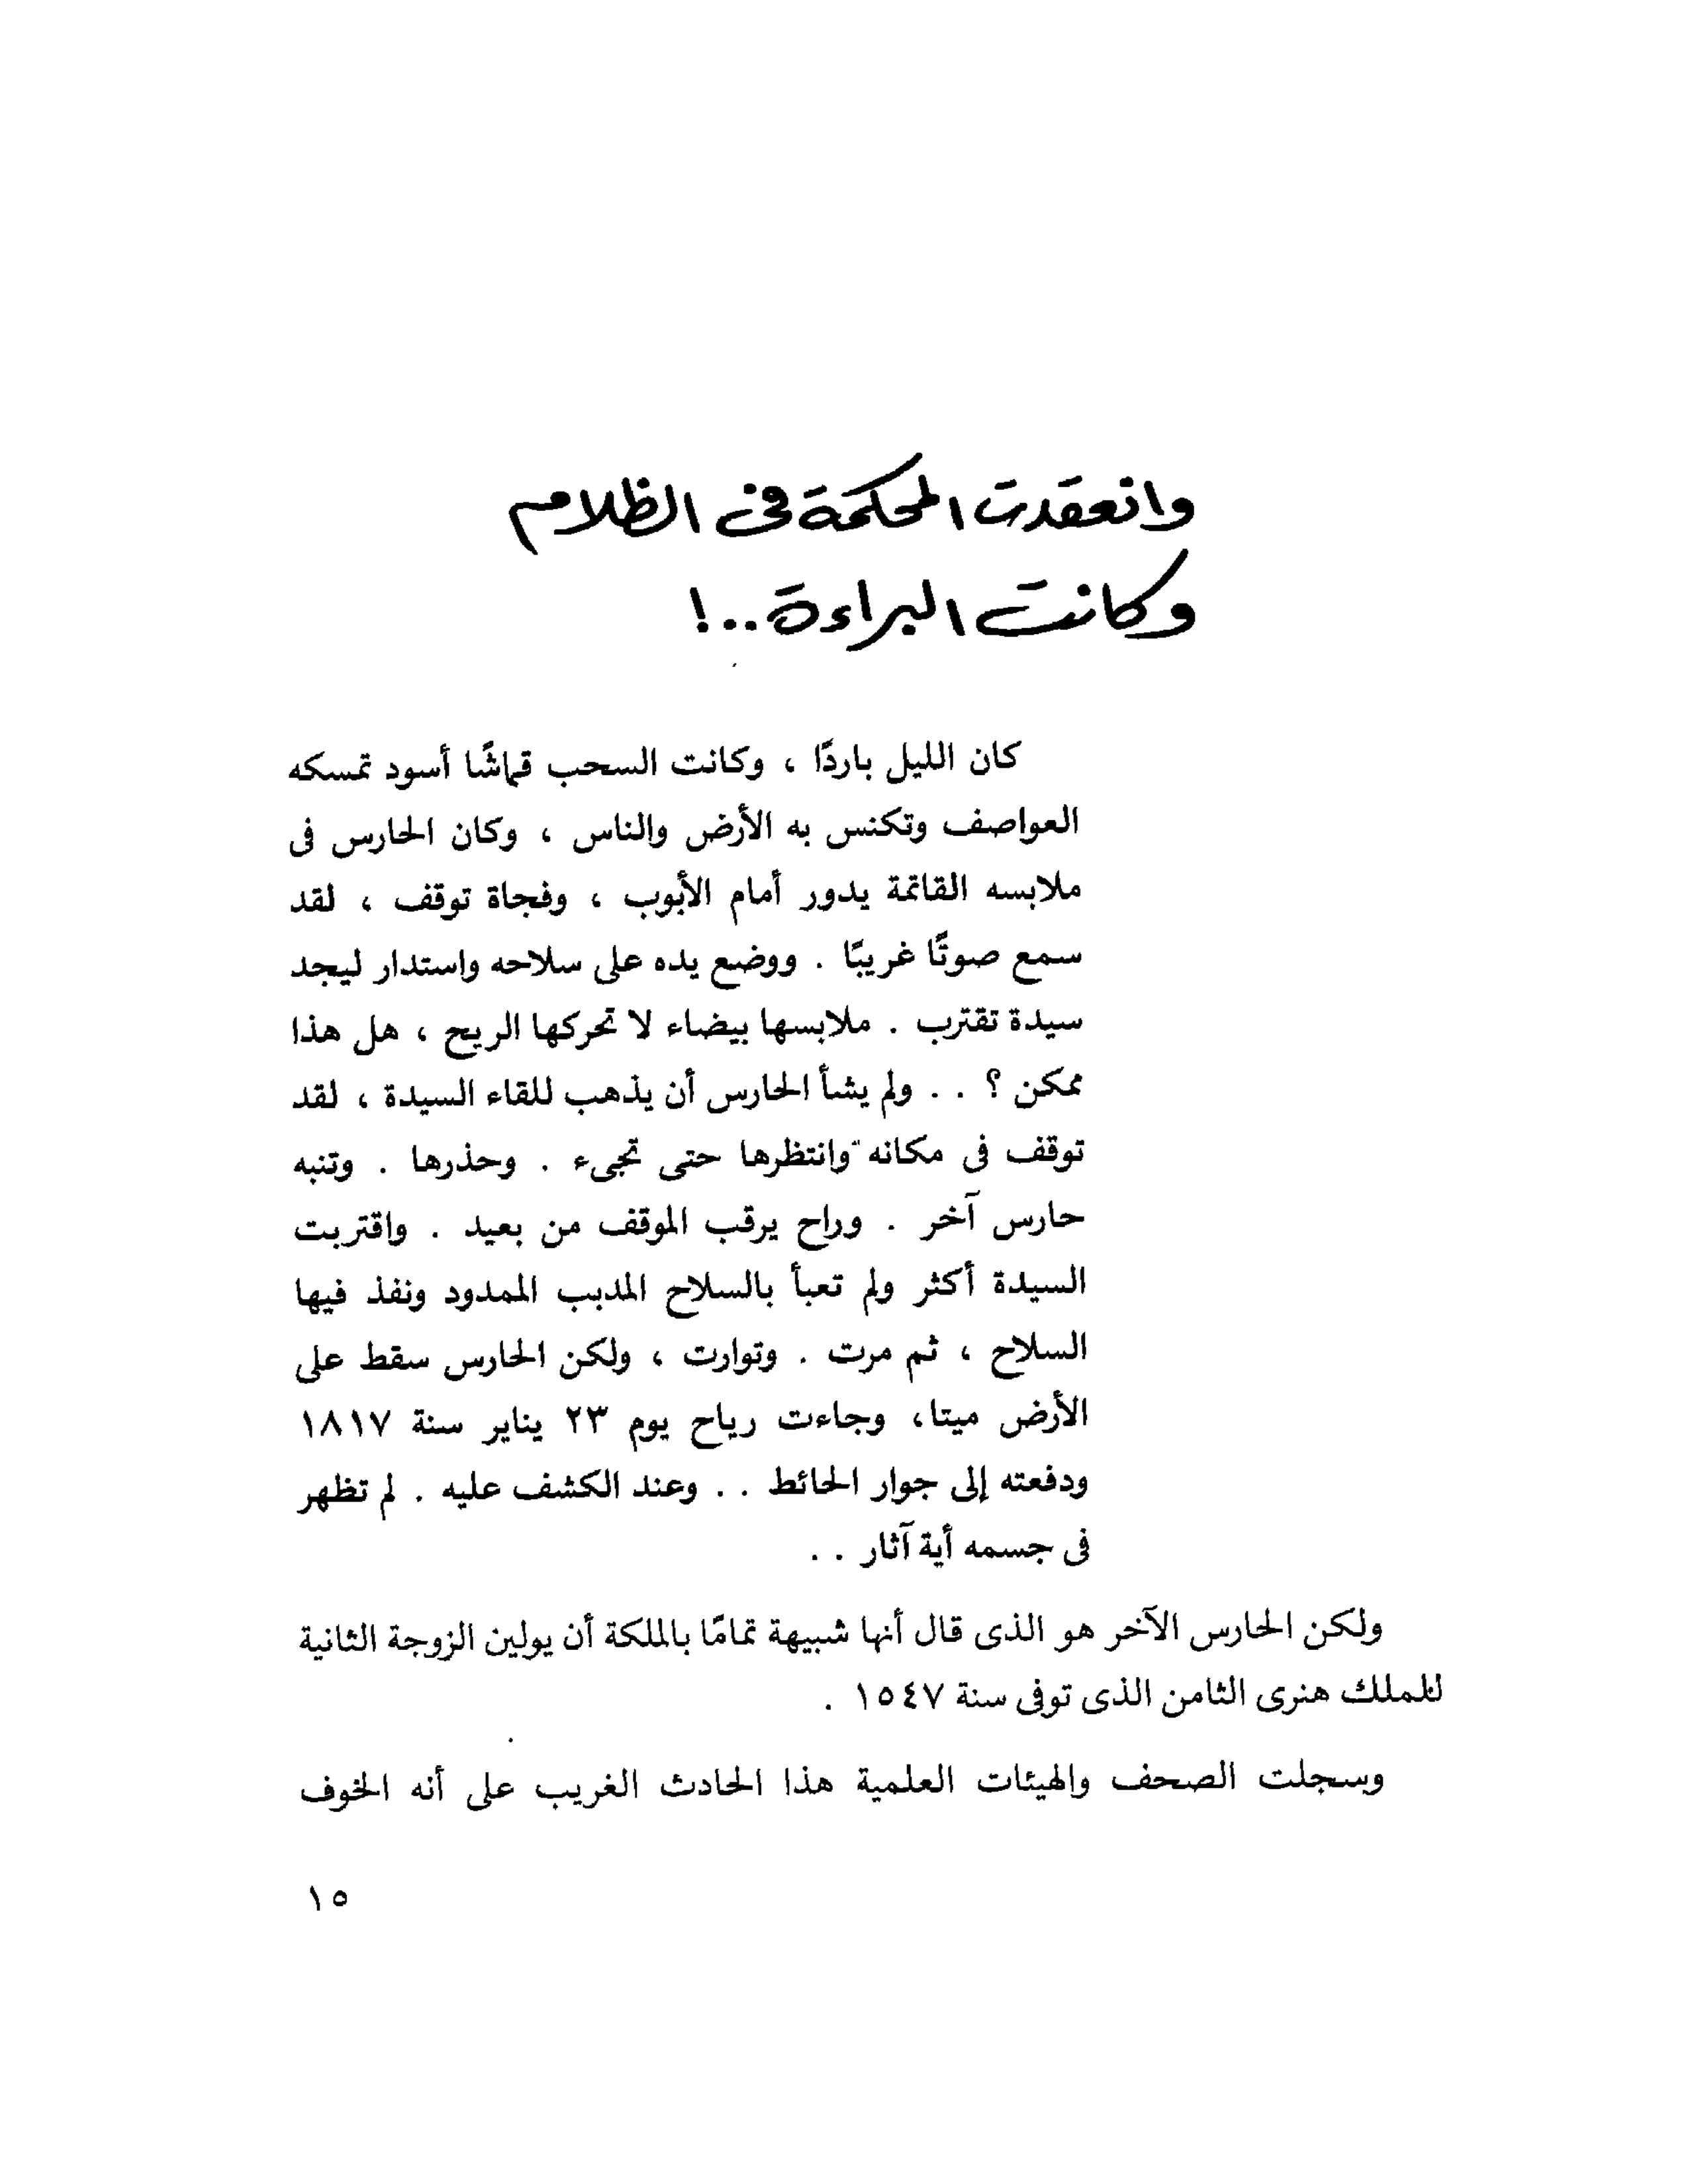 وانعقدت المحكمة فى الظلام
وكانت البراءة..!
كان الليل باردًا ، وكانت السحب قماشًا أسود تمسكه
العواصف وتكنس به الأرض والناس ، وكان الحارس فى
ملابسه القاتمة يدور أمام الأبوب ، وفجاة توقف ، لقد
سمع صوتًا غريبًا . ووضع يده على سلاحه واستدار ليجد
سيدة تقترب . ملابسها بيضاء لا تحركها الريح ، هل هذا
ممكن ؟ . . ولم يشأ الحارس أن يذهب للقاء السيدة ، لقد
توقف فى مكانه وانتظرها حتى تجىء . وحذرها . وتنبه
حارس آخر . وراح يرقب الموقف من بعيد . واقتربت
السيدة أكثر ولم تعبأ بالسلاح المدبب الممدود ونفذ فيها
السلاح ، ثم مرت . وتوارت ، ولكن الحارس سقط على
الأرض ميتا، وجاءت رياح يوم ٢٣ يناير سنة ١٨١٧
ودفعته إلى جوار الحائط . . وعند الكشف عليه . لم تظهر
فى جسمه أية آثار . .
ولكن الحارس الآخر هو الذى قال أنها شبيهة تمامًا بالملكة أن يولين الزوجة الثانية
للملك هنرى الثامن الذى توفى سنة ١٥٤٧ .
وسجلت الصحف والهيئات العلمية هذا الحادث الغريب على أنه الخوف
١٥